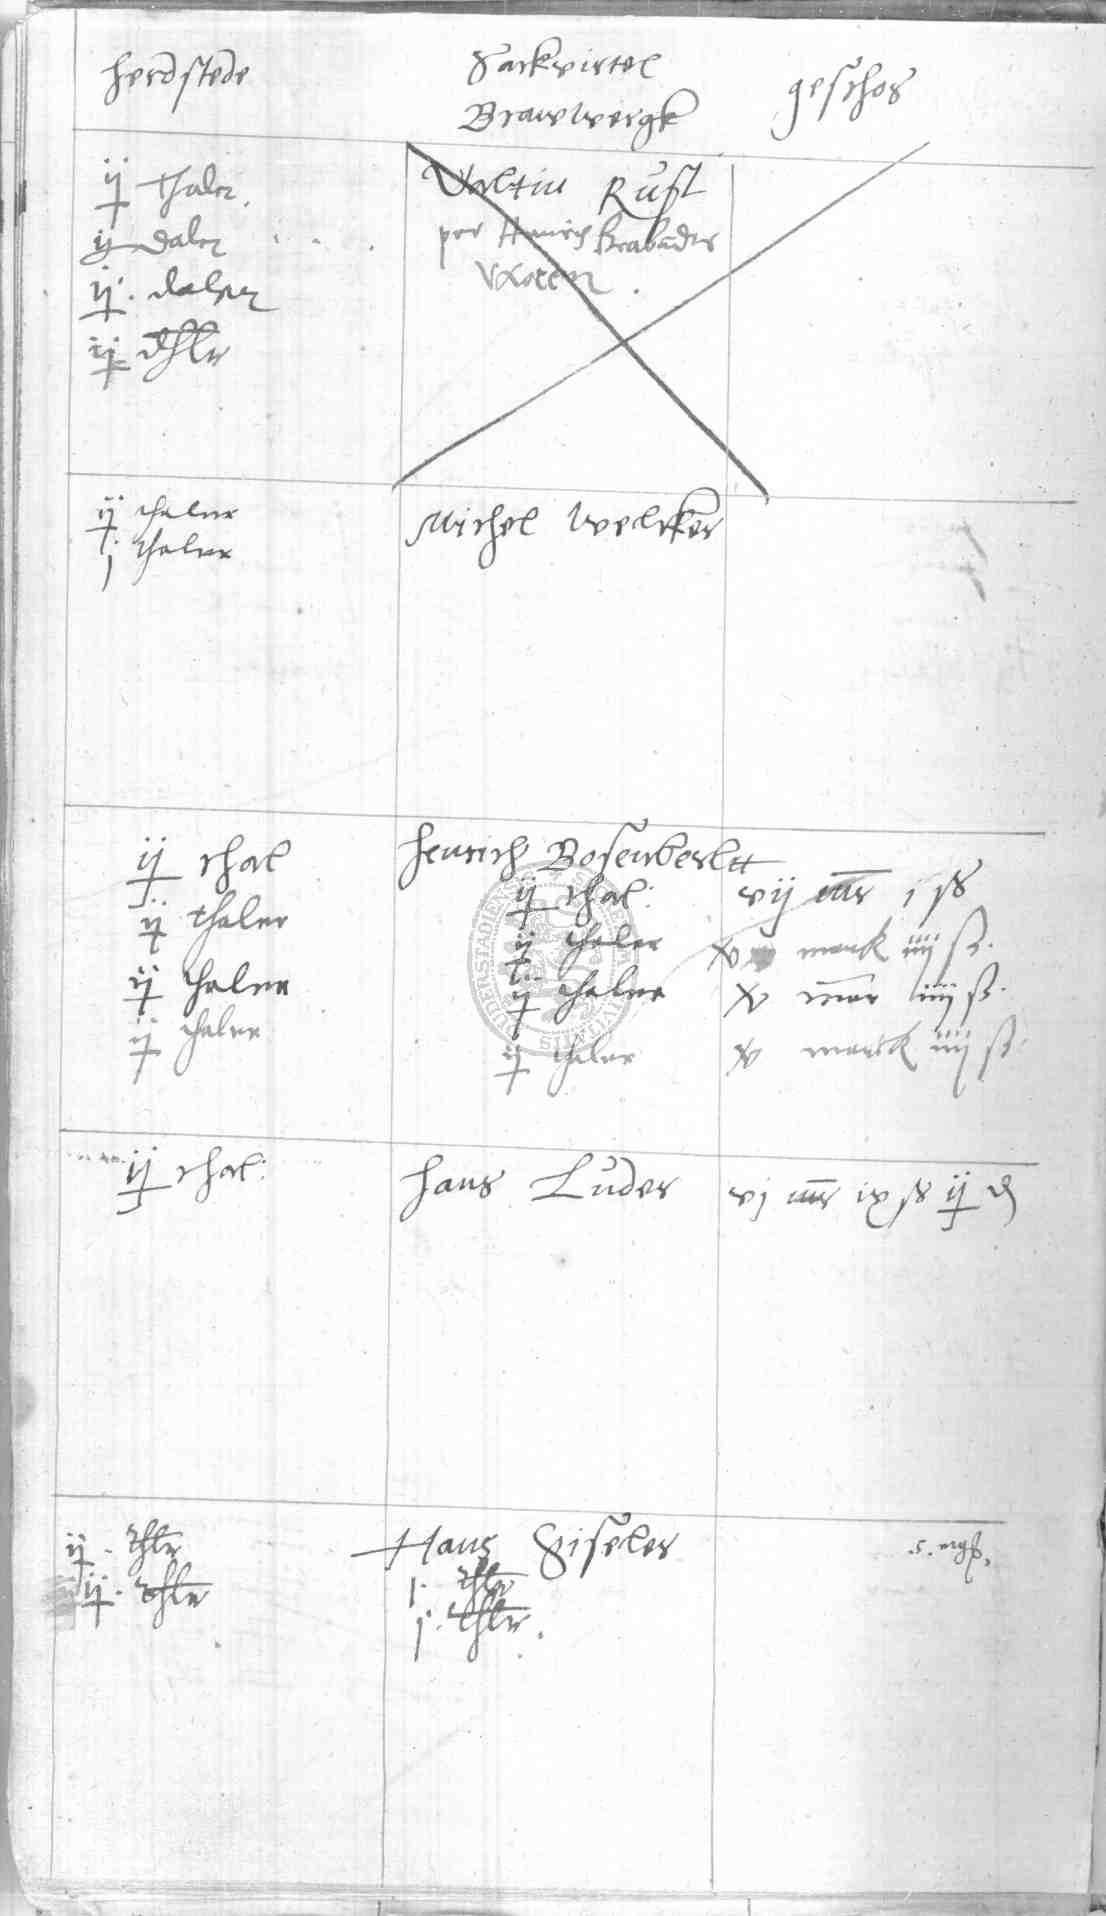 Herdstede
Sackvirtel
Brawwergk
geschos
ij thaler.
ij daler
ij. daler
ij thlr
Valtin Rust
per Henrich Brabander
Uxorem.
ij thaler
j thaler
Michel Welcker
ij thal
ij thaler
ij thaler
ij thaler
Henrich Bosenbertt
ij thal:
ij thaler
ij thaler
ij thaler
vij mr j ß
x marck iiij ß.
x mar iiij ß.
x marck iiij ß.
ij thal:
Hans Luder
vj mr ix ß ij d
ij. thlr
ij. thlr
Hans Giseler
j. thlr
j. thlr.